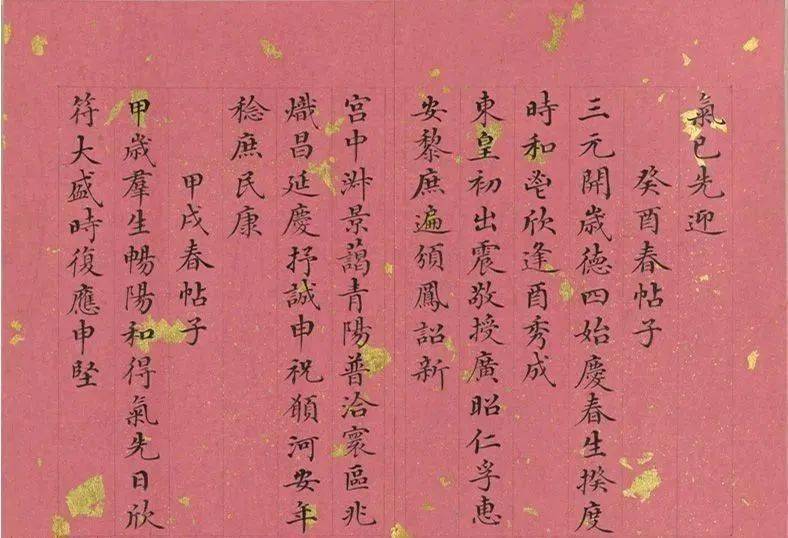 氣已先迎
癸酉春帖子
三元開歲德四始慶春生揆度
時和鬯欣逢酉秀成
東皇初出震敬授廣昭仁孚惠
安黎庶遍頒鳳詔新
宮中淑景藹青陽普洽寰區兆
熾昌延慶抒誠申祝願河安年
稔庶民康
甲戌春帖子
甲歲羣生暢陽和得氣先日欣
符大盛時復應申堅